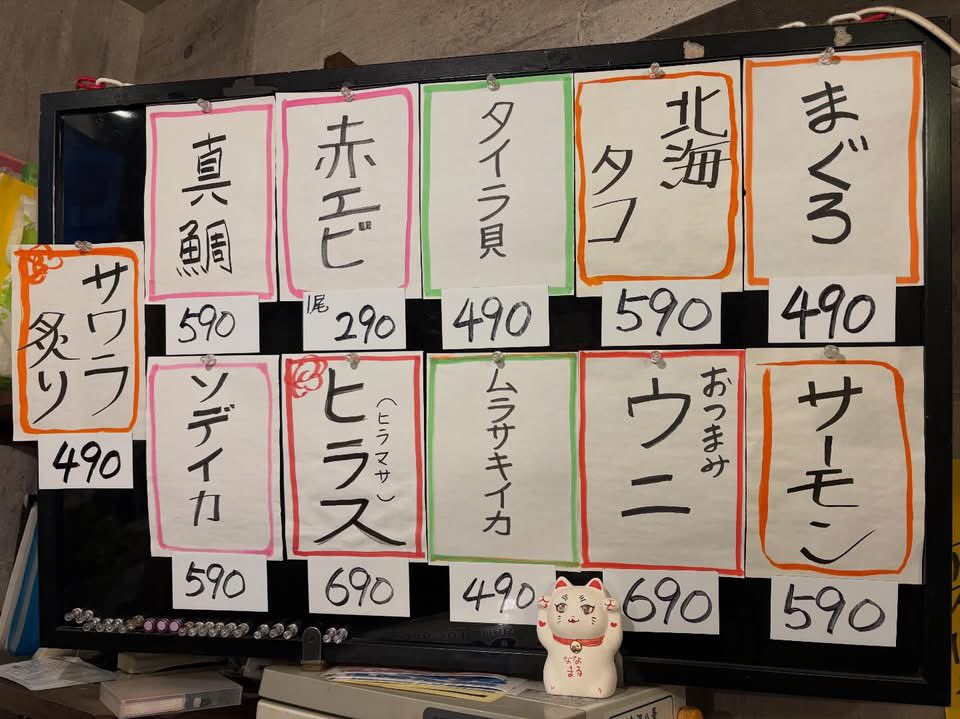 まぐろ
490
北海
タコ
590
タイラ貝
490
赤エビ
1尾
290
真鯛
590
サーモン
590
おつまみ
ウニ
690
ムラサキイカ
490
ヒラス
(ヒラマサ)
690
ソデイカ
590
サワラ
炙り
490
なな
まる